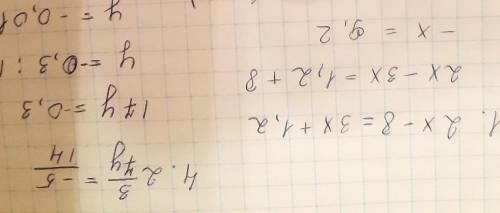 1. 2x - 8 = 3x + 1,2
2x - 3x = 1,2 + 8
- x = 9,2
4. 2 3/7y = -5/14
17y = -0,3
y = -0,3 :
y = - 0,0